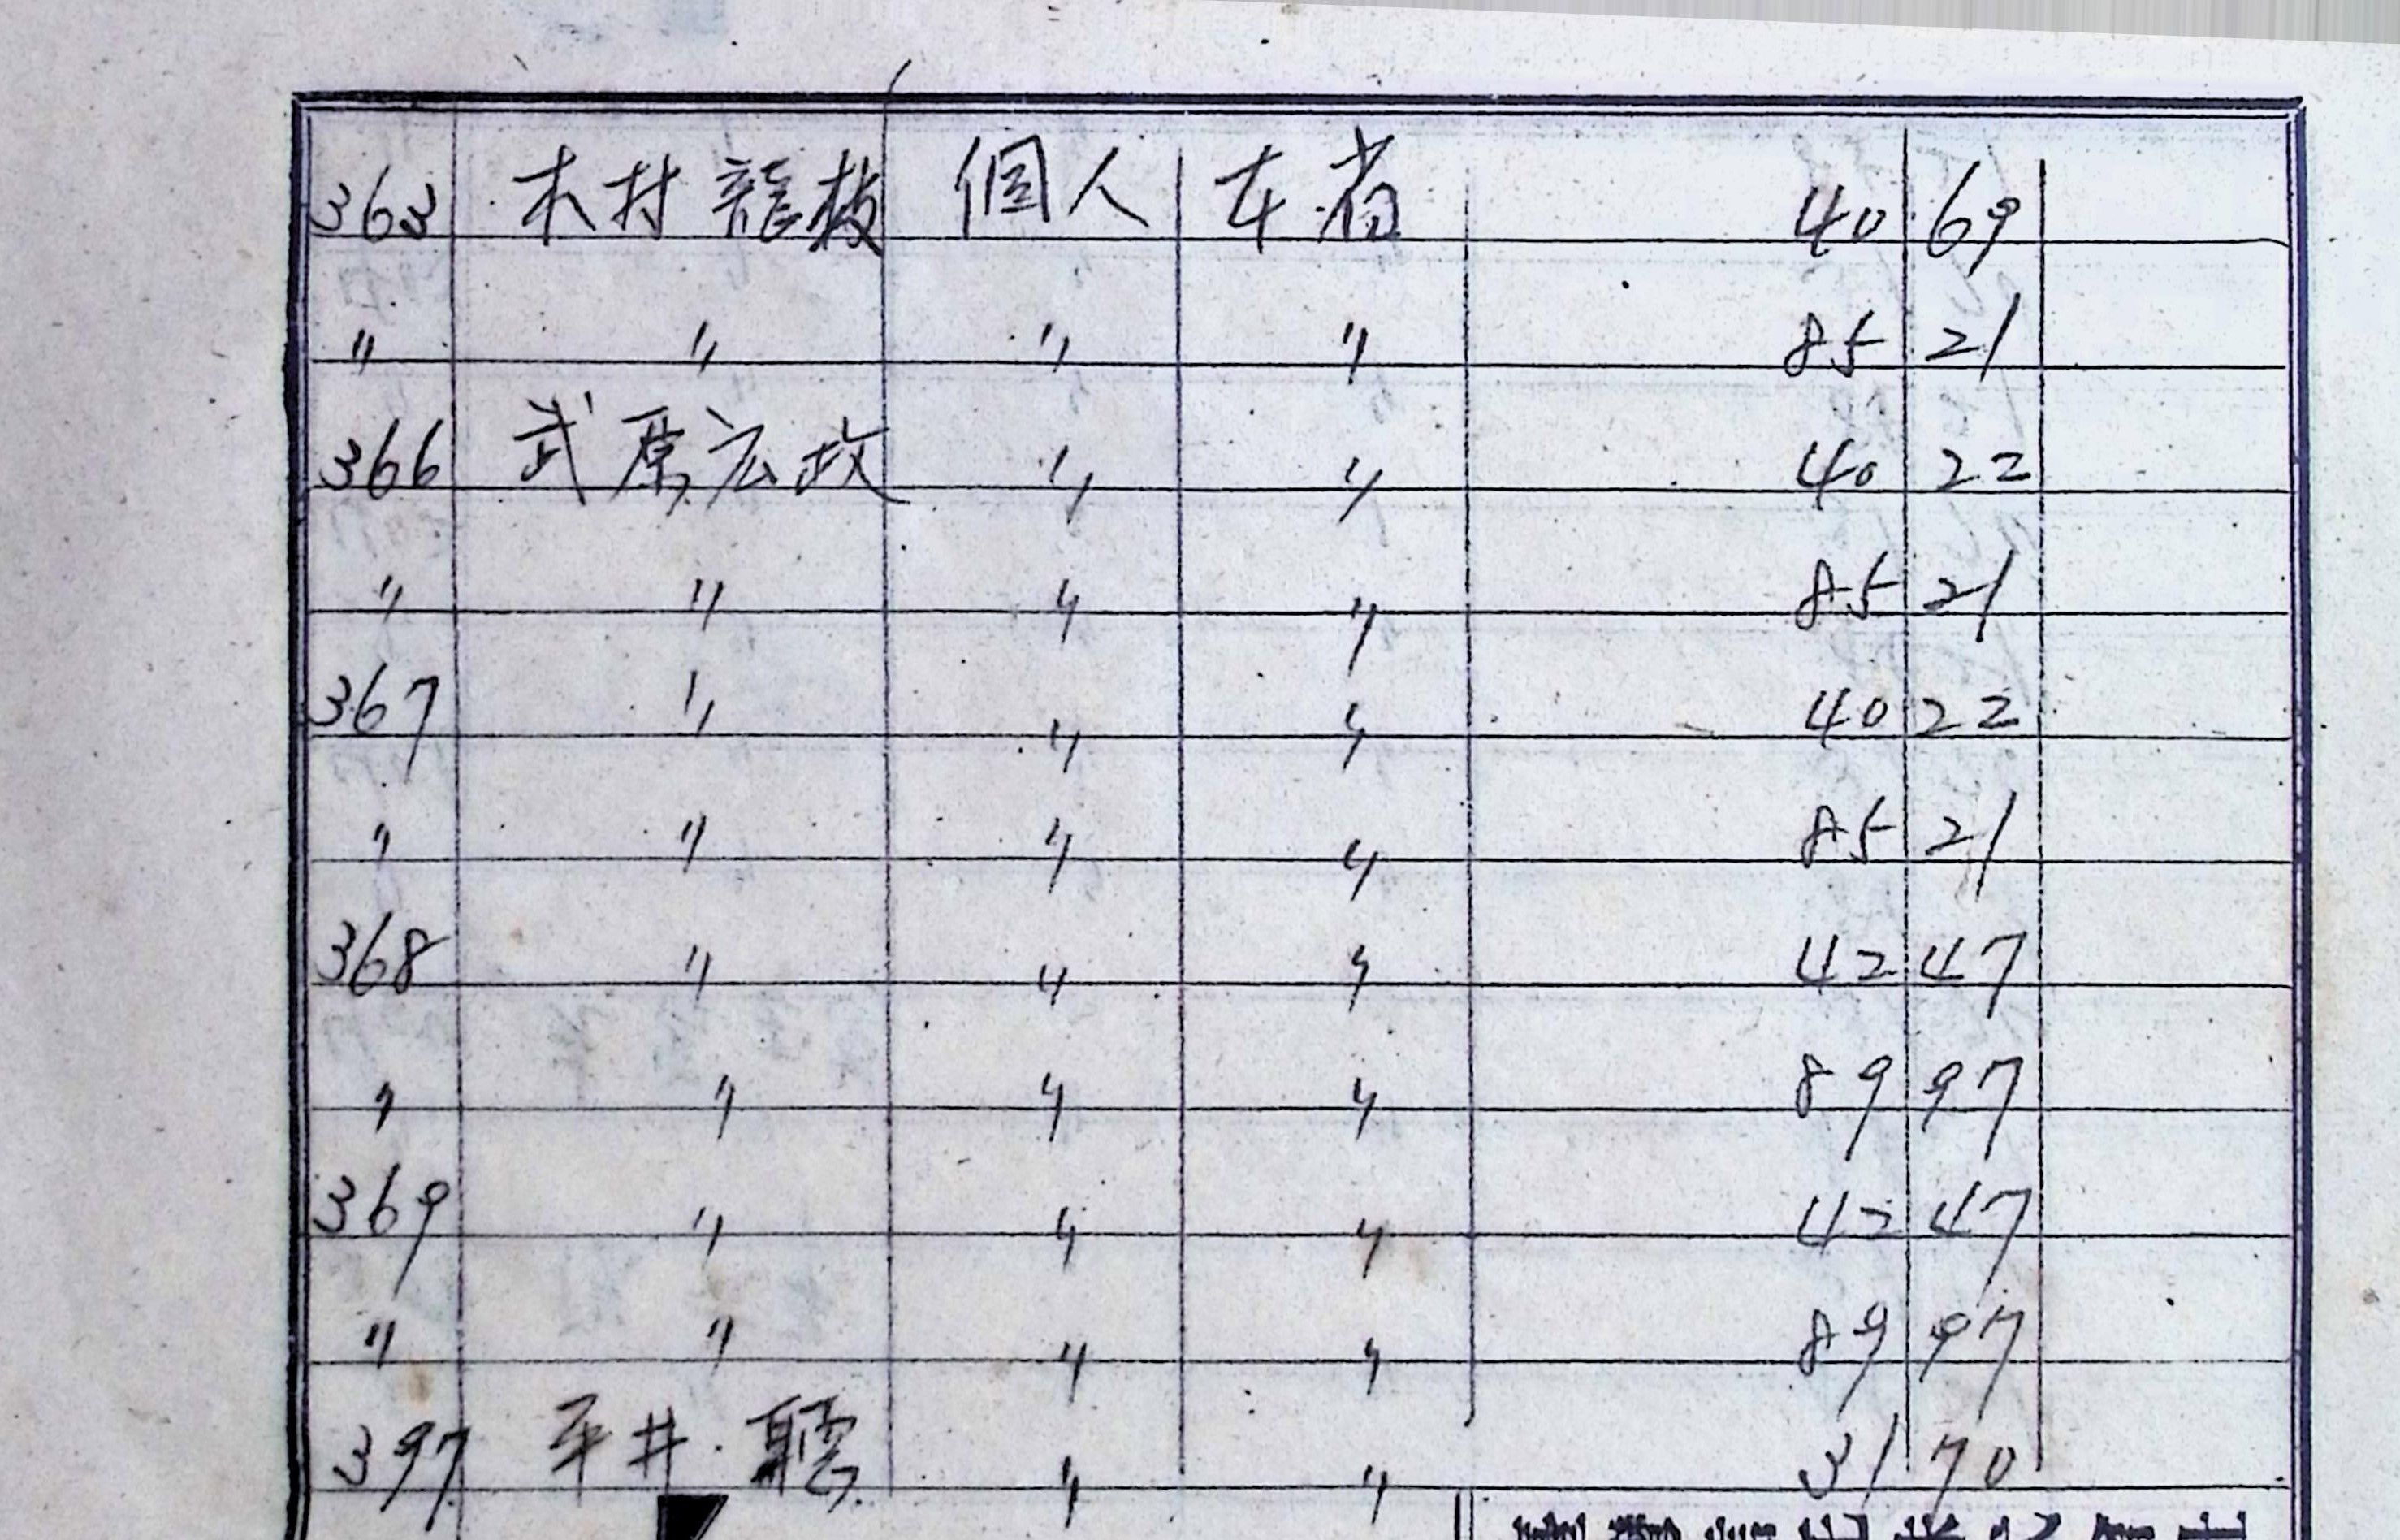 363 木村龍枝 個人 在省 40 69
〃 〃 〃 〃 85 21
366 武原宏政 〃 〃 40 22
〃 〃 〃 〃 85 21
367 〃 〃 〃 40 22
〃 〃 〃 〃 85 21
368 〃 〃 〃 42 47
〃 〃 〃 〃 89 97
369 〃 〃 〃 42 47
〃 〃 〃 〃 89 97
397 平井 〃 〃 31 70